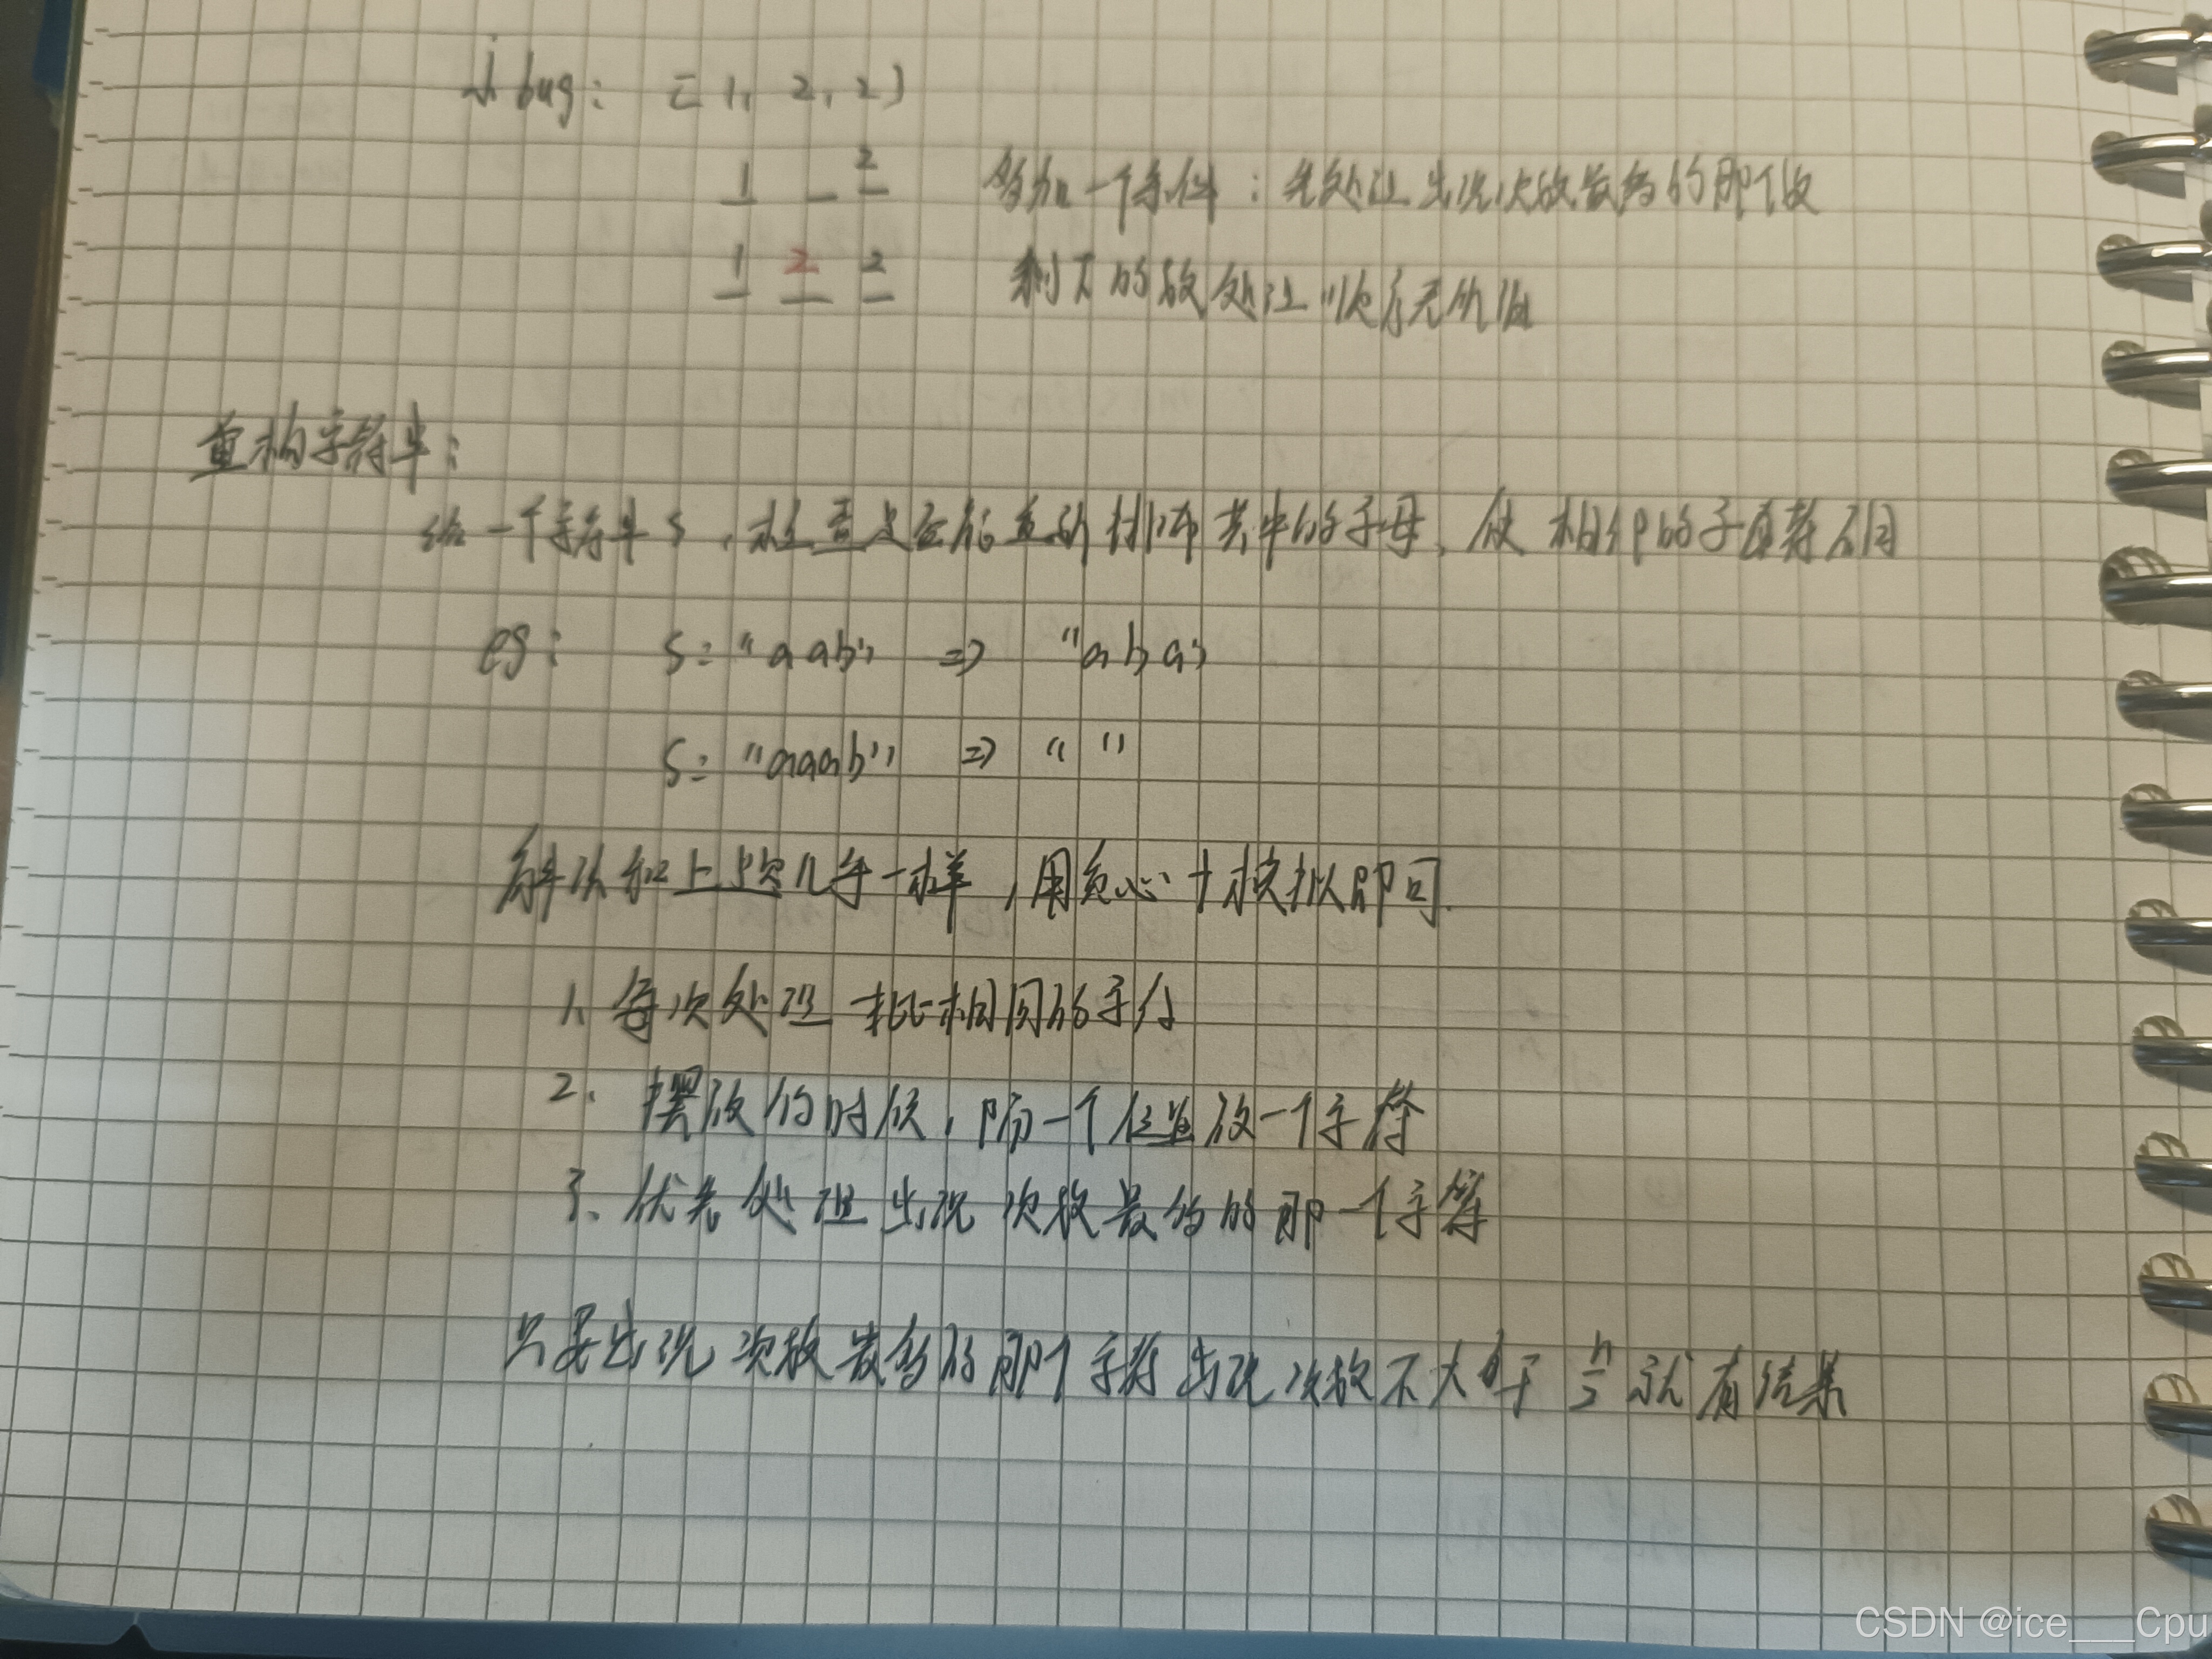 小bug: [1, 2, 2]
1 _ 2 多加一个条件：先处理出现次数最多的那个数
1 2 2 剩下的数处理顺序无所谓
重构字符串：
给一个字符串s，检查是否能重新排布其中的字母，使相邻的字符不同
eg: s: "aab" => "aba"
s: "aaab" => " "
解法和上题几乎一样，用贪心+模拟即可.
1、每次处理一批相同的字符
2、摆放的时候，隔一个位置放一个字符
3、优先处理出现次数最多的那一个字符
只要出现次数最多的那个字符出现次数不大于 n/2 就有结果
CSDN @ice___Cpu